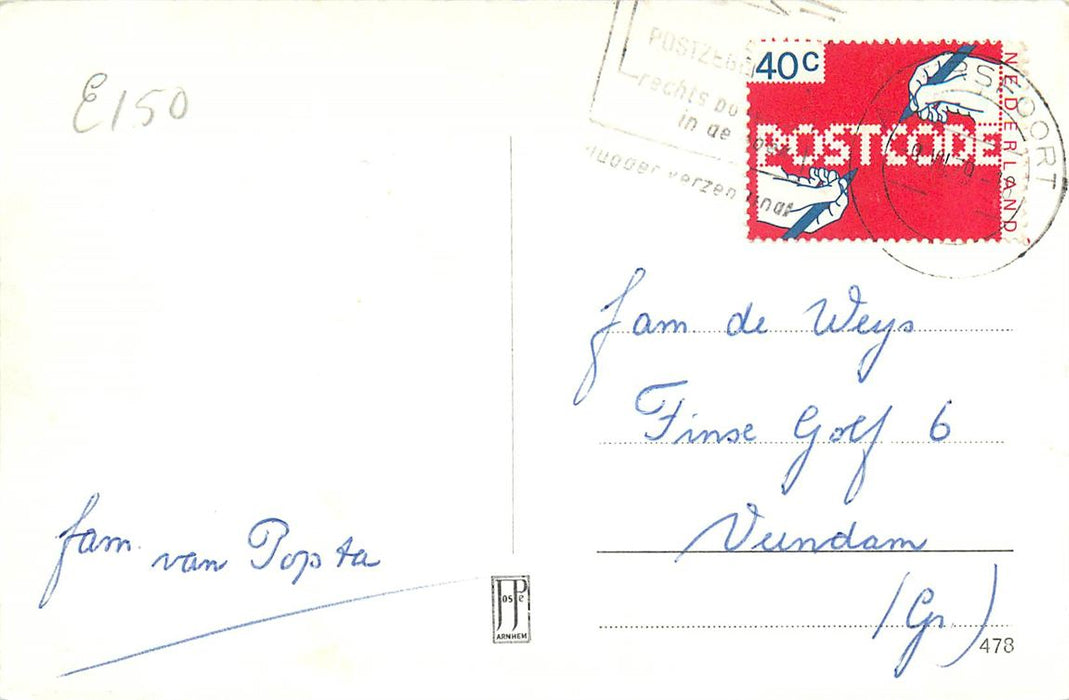 E150
POSTZEGEL
rechts bo
in de
vlugger verzen
40c
POSTCODE
NEDERLAND
AMERSFOORT
fam de Weys
Finse Golf 6
Veendam
(Gr.)
fam. van Popta
JosPe
ARNHEM
478